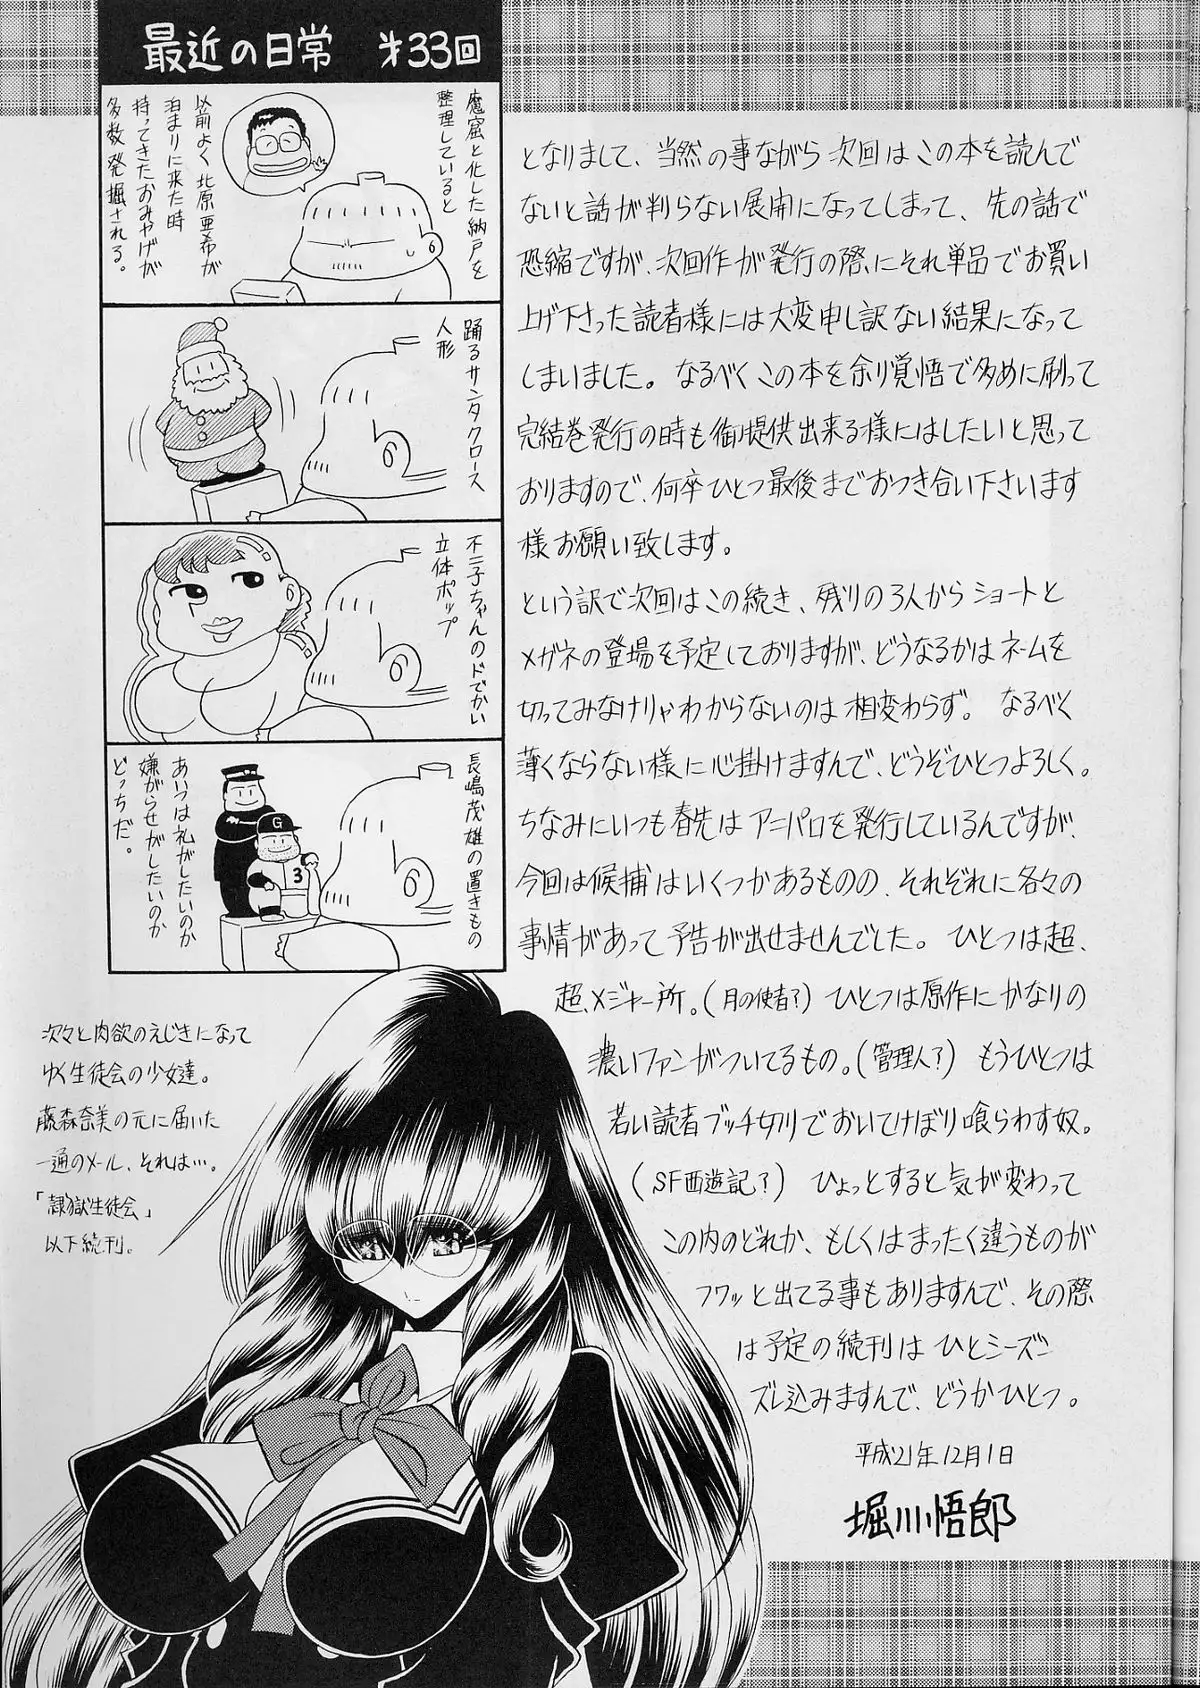 最近の日常　才33回
魔窟と化した納戸を
整理していると
以前よく北原亜希が
泊まりに来た時
持ってきたおみやげが
多数発掘される。
踊るサンタクロース
人形
不二子ちゃんのドでかい
立体ポップ
長嶋茂雄の置きもの
G
3
あいつは礼がしたいのか
嫌がらせがしたいのか
どっちだ。
となりまして、当然の事ながら次回はこの本を読んで
ないと話が判らない展開になってしまって、先の話で
恐縮ですが、次回作が発行の際にそれ単品でお買い
上げ下さった読者様には大変申し訳ない結果になって
しまいました。なるべくこの本を余り覚悟で多めに刷って
完結巻発行の時も御提供出来る様にはしたいと思って
おりますので、何卒ひとつ最後までおつき合い下さいます
様お願い致します。
という訳で次回はこの続き、残りの3人からショートと
メガネの登場を予定しておりますが、どうなるかはネームを
切ってみなけりゃわからないのは相変わらず。なるべく
薄くならない様に心掛けますんで、どうぞひとつよろしく。
ちなみにいつも春先はアニパロを発行しているんですが、
今回は候補はいくつかあるものの、それぞれに各々の
事情があって予告が出せませんでした。ひとつは超、
超、メジャー所。(月の使者?)ひとつは原作にかなりの
濃いファンがついてるもの。(管理人?)もうひとつは
若い読者ブッチ切りでおいてけぼり喰らわす奴。
(SF西遊記?)ひょっとすると気が変わって
この内のどれか、もしくはまったく違うものが
フワッと出てる事もありますんで、その際
は予定の続刊はひとシーズン
ズレ込みますんで、どうかひとつ。
平成21年12月1日
堀川悟郎
次々と肉欲のえじきになって
ゆく生徒会の少女達。
藤森奈美の元に届いた
一通のメール、それは…。
「隷獄生徒会」
以下続刊。